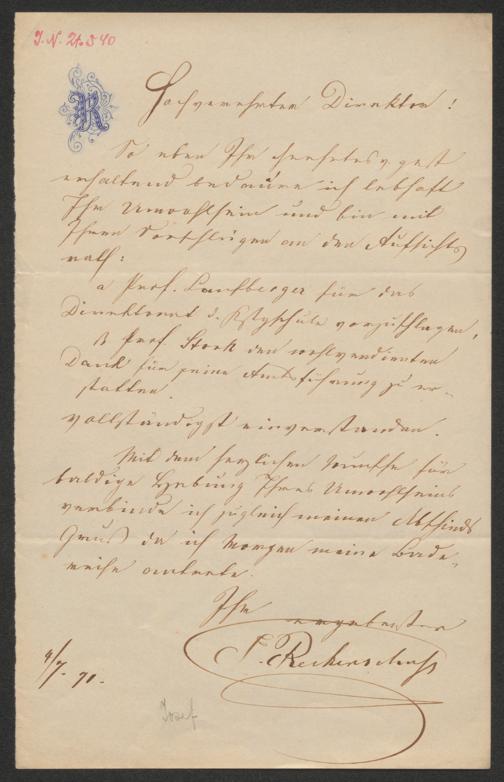 J.N. 21.540
R
Hochverehrter Direktor!
So eben Ihr geehrtes v. gest
erhaltend bedaure ich lebhaft
Ihr Unwohlsein und bin mit
Ihren Vorschlägen an den Aufsichts
rath:
a Prof. Laufberger für das
Direktorat d. Kstgschule vorzuschlagen,
B Prof. Stork den wohlverdienten
Dank für seine Amtsführung zu er-
statten.
vollständigst einverstanden.
Mit dem herzlichen Wunsche für
baldige Hebung Ihres Unwohlseins
verbinde ich zugleich meinen Abschieds
Gruß da ich Morgen meine Bade-
reise antrete.
Ihr ergebenster
4/7. 71.
Josef